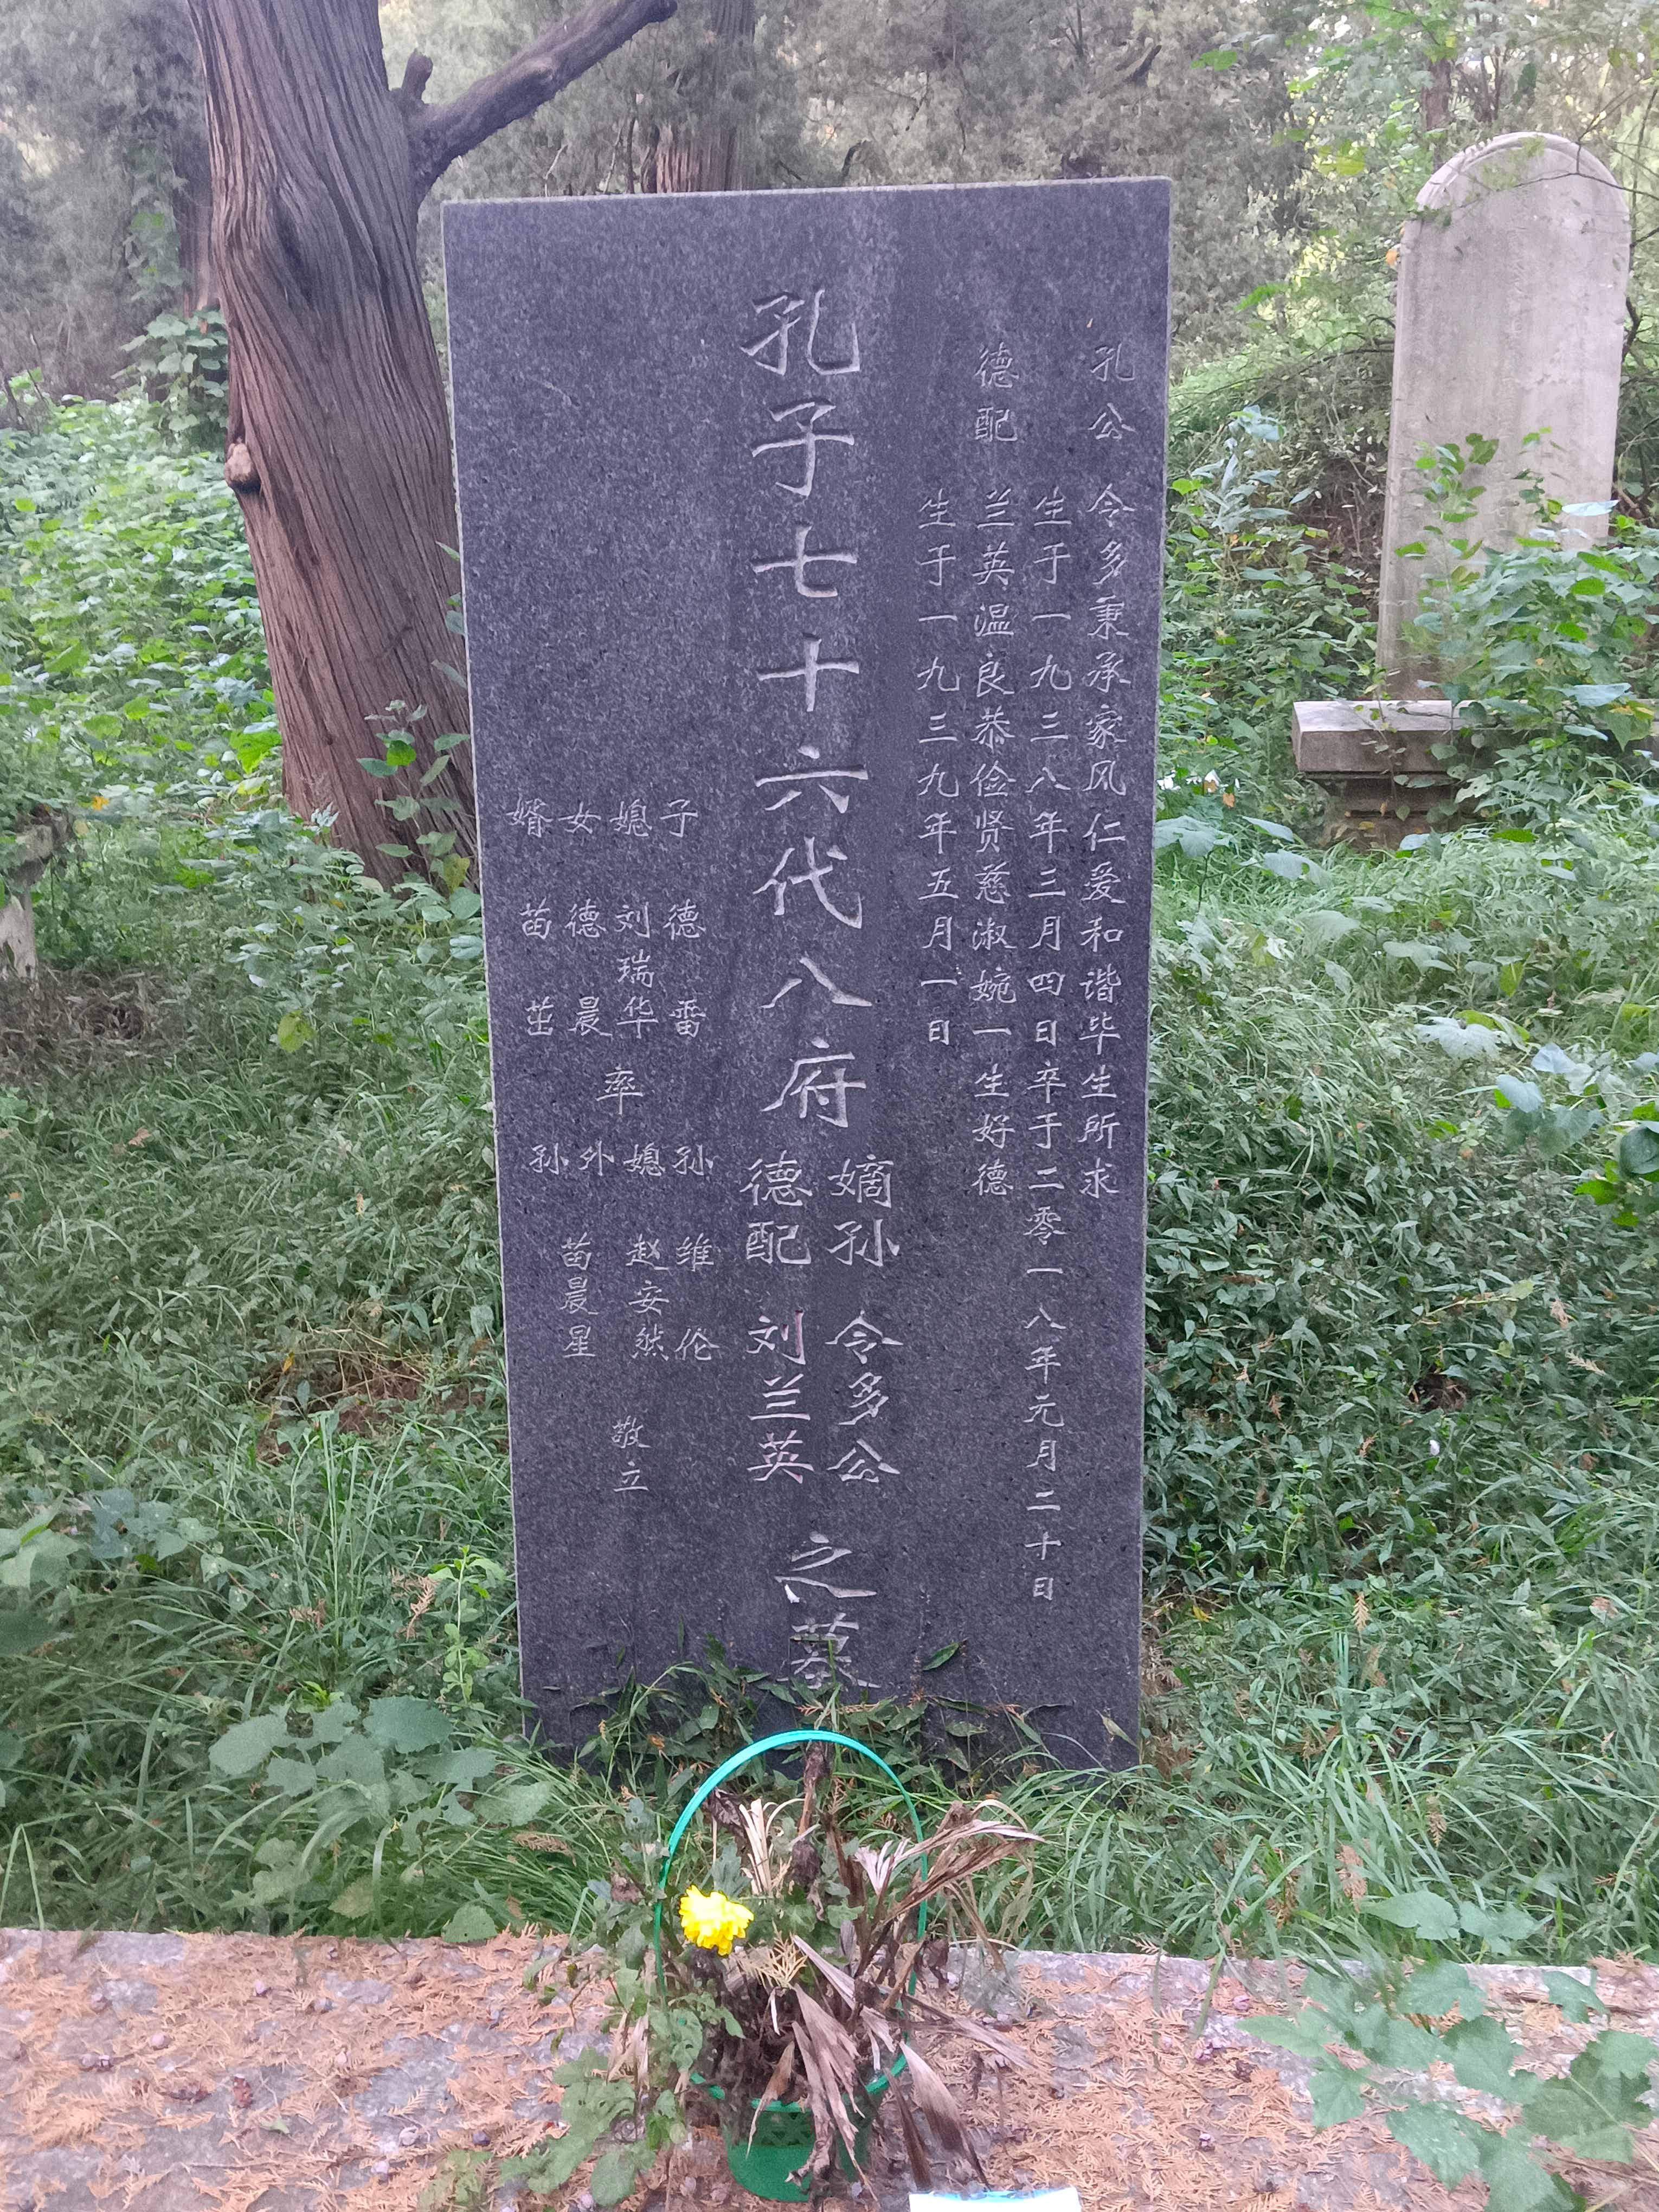 孔公 令多秉承家风仁爱和谐毕生所求
生于一九三八年三月四日卒于二零一八年元月二十日
德配 兰英温良恭俭贤慈淑婉一生好德
生于一九三九年五月一日
孔子七十六代八府
嫡孙 令多公
德配 刘兰英
之墓
子 德 番
媳 刘瑞华
女 德 晨
婿 苗 茁
率
孙 维 伦
媳 赵安然
外孙 苗晨星
敬立